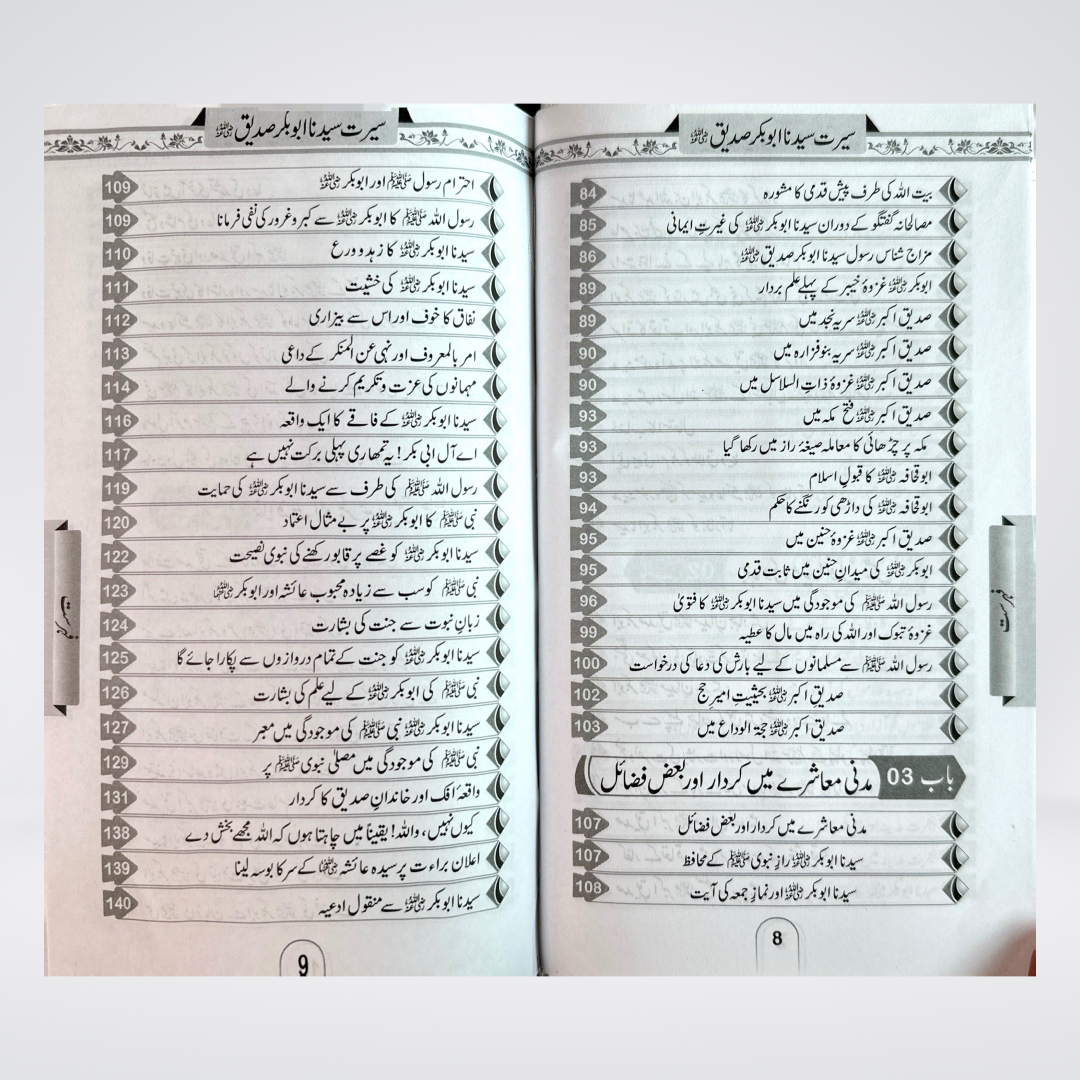 سیرت سیدنا ابوبکر صدیق رضی اللہ عنہ
بیت اللہ کی طرف پیش قدمی کا مشورہ 84
مصالحانہ گفتگو کے دوران سیدنا ابوبکر رضی اللہ عنہ کی غیرتِ ایمانی 85
مزاج شناس رسول سیدنا ابوبکر صدیق رضی اللہ عنہ 86
ابوبکر رضی اللہ عنہ غزوۂ خیبر کے پہلے علم بردار 89
صدیق اکبر رضی اللہ عنہ سریہ نجد میں 89
صدیق اکبر رضی اللہ عنہ سریہ بنو فزارہ میں 90
صدیق اکبر رضی اللہ عنہ غزوۂ ذات السلاسل میں 90
صدیق اکبر رضی اللہ عنہ فتح مکہ میں 93
مکہ پر چڑھائی کا معاملہ صیغۂ راز میں رکھا گیا 93
ابو قحافہ رضی اللہ عنہ کا قبولِ اسلام 93
ابو قحافہ رضی اللہ عنہ کی داڑھی کو رنگنے کا حکم 94
صدیق اکبر رضی اللہ عنہ غزوۂ حنین میں 95
ابوبکر رضی اللہ عنہ کی میدانِ حنین میں ثابت قدمی 95
رسول اللہ ﷺ کی موجودگی میں سیدنا ابوبکر رضی اللہ عنہ کا فتویٰ 96
غزوۂ تبوک اور اللہ کی راہ میں مال کا عطیہ 99
رسول اللہ ﷺ سے مسلمانوں کے لیے بارش کی دعا کی درخواست 100
صدیق اکبر رضی اللہ عنہ بحیثیت امیرِ حج 102
صدیق اکبر رضی اللہ عنہ حجۃ الوداع میں 103
باب 03 مدنی معاشرے میں کردار اور بعض فضائل
مدنی معاشرے میں کردار اور بعض فضائل 107
سیدنا ابوبکر رضی اللہ عنہ رازِ نبوی ﷺ کے محافظ 107
سیدنا ابوبکر رضی اللہ عنہ اور نمازِ جمعہ کی آیت 108
8
فہرست
سیرت سیدنا ابوبکر صدیق رضی اللہ عنہ
احترام رسول ﷺ اور ابوبکر رضی اللہ عنہ 109
رسول اللہ ﷺ کا ابوبکر رضی اللہ عنہ سے کبر و غرور کی نفی فرمانا 109
سیدنا ابوبکر رضی اللہ عنہ کا زہد و ورع 110
سیدنا ابوبکر رضی اللہ عنہ کی خشیت 111
نفاق کا خوف اور اس سے بیزاری 112
امر بالمعروف اور نہی عن المنکر کے داعی 113
مہمانوں کی عزت و تکریم کرنے والے 114
سیدنا ابوبکر رضی اللہ عنہ کے فاقے کا ایک واقعہ 116
اے آل ابی بکر! یہ تمھاری پہلی برکت نہیں ہے 117
رسول اللہ ﷺ کی طرف سے سیدنا ابوبکر رضی اللہ عنہ کی حمایت 119
نبی ﷺ کا ابوبکر رضی اللہ عنہ پر بے مثال اعتماد 120
سیدنا ابوبکر رضی اللہ عنہ کو غصے پر قابو رکھنے کی نبوی نصیحت 122
نبی ﷺ کو سب سے زیادہ محبوب عائشہ اور ابوبکر رضی اللہ عنہما 123
زبانِ نبوت سے جنت کی بشارت 124
سیدنا ابوبکر رضی اللہ عنہ کو جنت کے تمام دروازوں سے پکارا جائے گا 125
نبی ﷺ کی ابوبکر رضی اللہ عنہ کے لیے علم کی بشارت 126
سیدنا ابوبکر رضی اللہ عنہ نبی ﷺ کی موجودگی میں معبر 127
نبی ﷺ کی موجودگی میں مصلیٰ نبوی ﷺ پر 129
واقعۂ افک اور خاندانِ صدیق کا کردار 131
کیوں نہیں، واللہ! یقیناً میں چاہتا ہوں کہ اللہ مجھے بخش دے 138
اعلان براءت پر سیدہ عائشہ رضی اللہ عنہا کے سر کا بوسہ لینا 139
سیدنا ابوبکر رضی اللہ عنہ سے منقول ادعیہ 140
9
فہرست